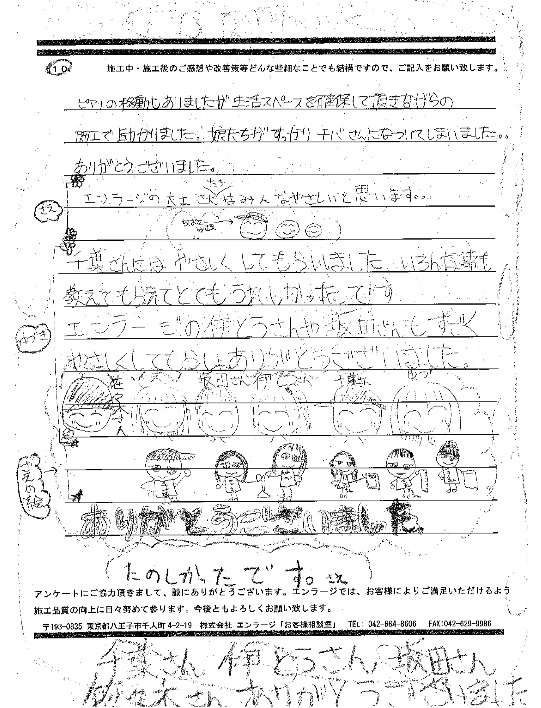 ⑩ 施工中・施工後のご感想や改善策等どんな些細なことでも結構ですので、ご記入をお願い致します。
ピアノの移動もありましたが生活スペースを確保して頂きながらの
施工で助かりました。娘たちがすっかりチバさんになついてしまいました。
ありがとうございました。
エンラージの大工さんたちはみんなやさしいと思います。
千葉さんにはやさしくしてもらいました。いろんな事も
教えてもらえてとてもうれしかったしてです
エンラージの伊とうさんや坂田さんもすごく
やさしくしてもらいありがとうございました。
佐々木さん 坂田さん 伊とうさん 千葉さん
ありがとうございました
たのしかったです。
アンケートにご協力頂きまして、誠にありがとうございます。エンラージでは、お客様によりご満足いただけるよう
施工品質の向上に日々努めて参ります。今後ともよろしくお願い致します。
〒193-0835 東京都八王子市千人町4-2-19 株式会社 エンラージ「お客様相談室」 TEL: 042-664-8606 FAX:042-629-9986
千葉さん 伊とうさん 坂田さん
佐々木さん ありがとうございました